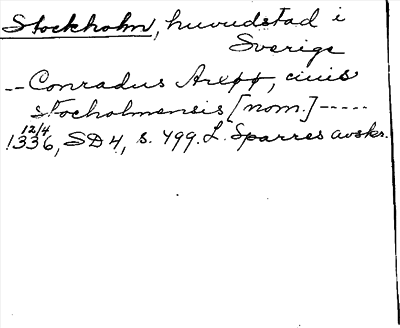 Stockholm, huvudstad i
Sverige
-- Conradus Arepp, ciuis
stocholmensis [nom.] -----
12/4
1336, SD 4, s. 499. L. Sparres avskr.